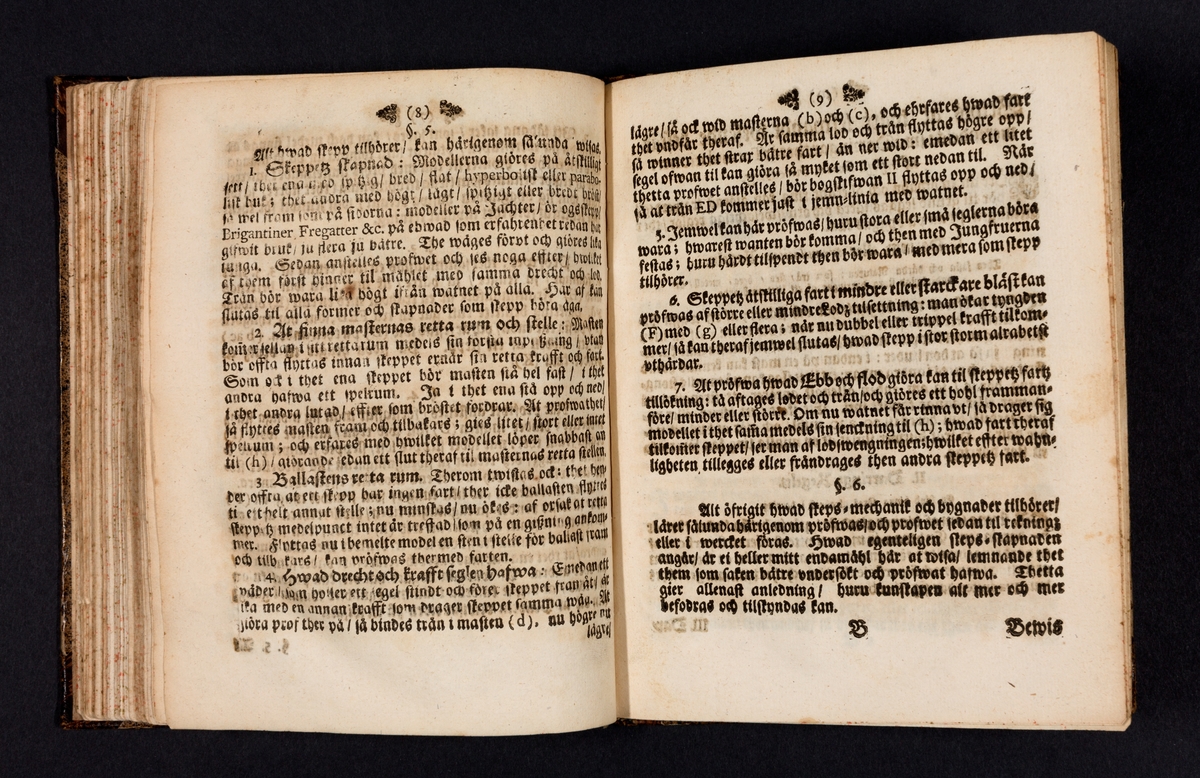 (8)
§. 5.
Alt hwad skepp tilhörer/ kan härigenom sålunda wisas.
1. Skeppetz skapnad: Modellerna giöres på åtskilligt
sett/ thet ena med spitzig/ bred/ flat/ hyperbolisk eller parabo-
lisk buk; thet andra med högt/ lågt/ spitzigt eller bredt bröst/
så wel fram som på sidorna: modeller på Jachter/ örlogsskepp/
Brigantiner, Fregatter &c. på ehwad som erfarenhet redan har
gifwit bruk/ ju flera ju bätre. The wäges förvt och giöres lika
tunga. Sedan anstelles profwet och ses noga effter/ hwilket
af them först hinner til målet med samma drecht och lod.
Trån bör wara lika högt ifrån watnet på alla. Här af kan
slutas til alla former och skapnader som skepp böra äga.
2. At finna masternas retta rum och stelle: Masten
kom̃er sellan i sitt retta rum medels sin första uppsettning/ vtan
bör offta flyttas innan skeppet ernår sin retta krafft och fart.
Som ock i thet ena skeppet bör masten stå hel fast/ i thet
andra hafwa ett spelrum. Ja i thet ena stå opp och ned/
i thet andra lutad/ effter som bröstet fordrar. At profwa thet/
så flyttes masten fram och tilbakars; gies litet/ stort eller intet
spelrum; och erfares med hwilket modellet löper snabbast an
til (h)/ giörande sedan ett slut theraf til masternas retta stellen.
3. Ballastens retta rum. Therom twistas ock: thet hen-
der offta at ett skepp har ingen fart/ ther icke ballasten flyttes
til ett helt annat stelle; nu minskas/ nu ökes: af orsak at retta
skeppetz medelpunct intet är treffad/ som på en gißning ankom-
mer. Flyttas nu i bemelte model en sten i stelle för ballast fram
och tilbakars/ kan pröfwas thermed farten.
4. Hwad drecht och krafft seglen hafwa: Emedan ett
wäder/ som holler ett segel stindt och förer skeppet fran åt/ är
lika med en annan krafft som drager skeppet samma wäg. At
giöra prof ther på/ så bindes trån i masten (d), nu högre nu
lägre/
(9)
lägre/ så ock wid masterna (b) och (c), och ehrfares hwad fart
thet vndfår theraf. Är samma lod och trån flyttas högre opp/
så winner thet strax bätre fart/ än ner wid: emedan ett litet
segel ofwan til kan giöra så myket som ett stort nedan til. När
thetta profwet anstelles/ bör bogskifwan II flyttas opp och ned/
så at trån ED kommer jast i jemn-linia med watnet.
5. Jemwel kan här pröfwas/ huru stora eller små seglerna böra
wara; hwarest wanten bör komma/ och then med Jungfruerna
festas; huru hårdt tilspendt then bör wara/ med mera som skepp
tilhörer.
6. Skeppetz åtskilliga fart i mindre eller starckare bläst kan
pröfwas af större eller mindre Lodz tilsettning: man ökar tyngden
(F) med (g) eller flera; när nu dubbel eller trippel krafft tilkom-
mer/ så kan theraf jemwel slutas/ hwad skepp i stor storm alrabetst
vthärdar.
7. At pröfwa hwad Ebb och flod giöra kan til skeppetz fartz
tillökning: tå aftages lodet och trån/ och giöres ett hohl framman-
före/ minder eller större. Om nu watnet får rinna vt/ så drager sig
modellet i thet sam̃a medels sin senckning til (h); hwad fart theraf
tilkom̃er skeppet/ ser man af lodswengningen; hwilket effter wahn-
ligheten tillegges eller frändrages then andra skeppetz fart.
§. 6.
Alt öfrigit hwad skeps-mechanik och bygnader tilhörer/
lärer sålunda härigenom pröfwas/ och profwet sedan til rekning
eller i wercket föras. Hwad egenteligen skeps-skapnaden
angår/ är ei heller mitt endamåhl här at wisa/ lemnande thet
them som saken bätre vndersökt och pröfwat hafwa. Thetta
gier allenast anledning/ huru kunskapen alt mer och mer
befodras och tilskyndas kan.
B
Bewis